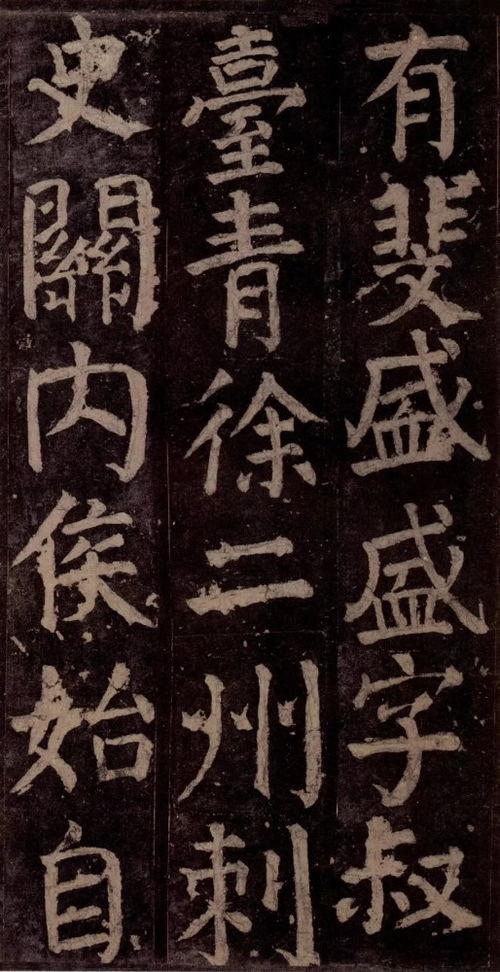 有斐盛盛字叔
臺青徐二州刺
史關内侯始自